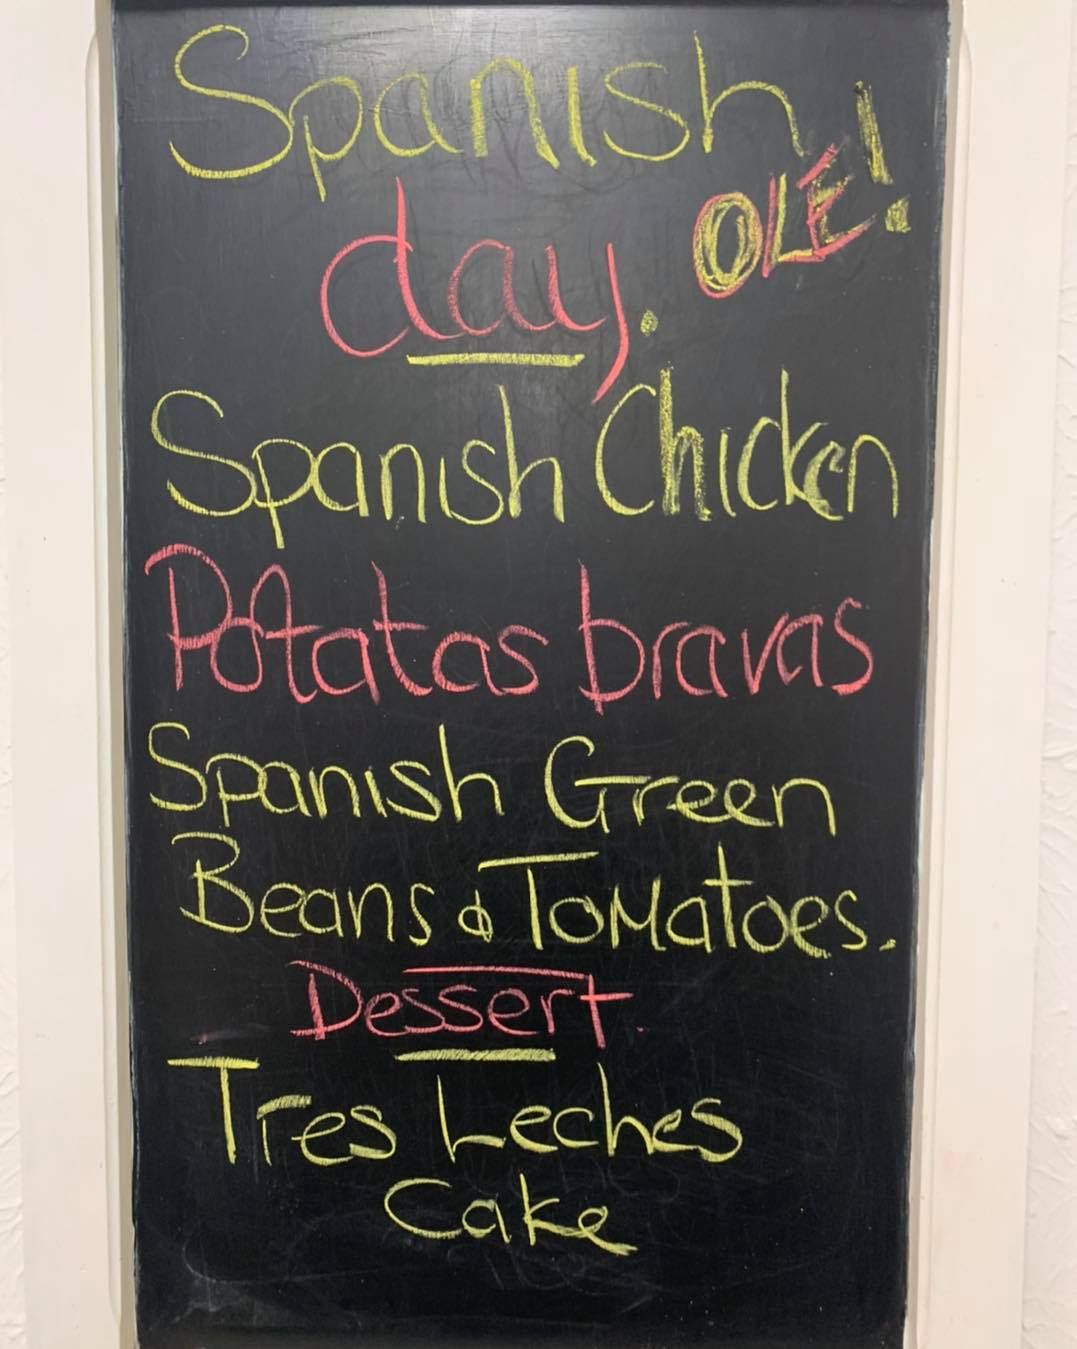 Spanish
day. OLE!
Spanish Chicken
Potatas bravas
Spanish Green
Beans & Tomatoes.
Dessert.
Tres Leches
Cake